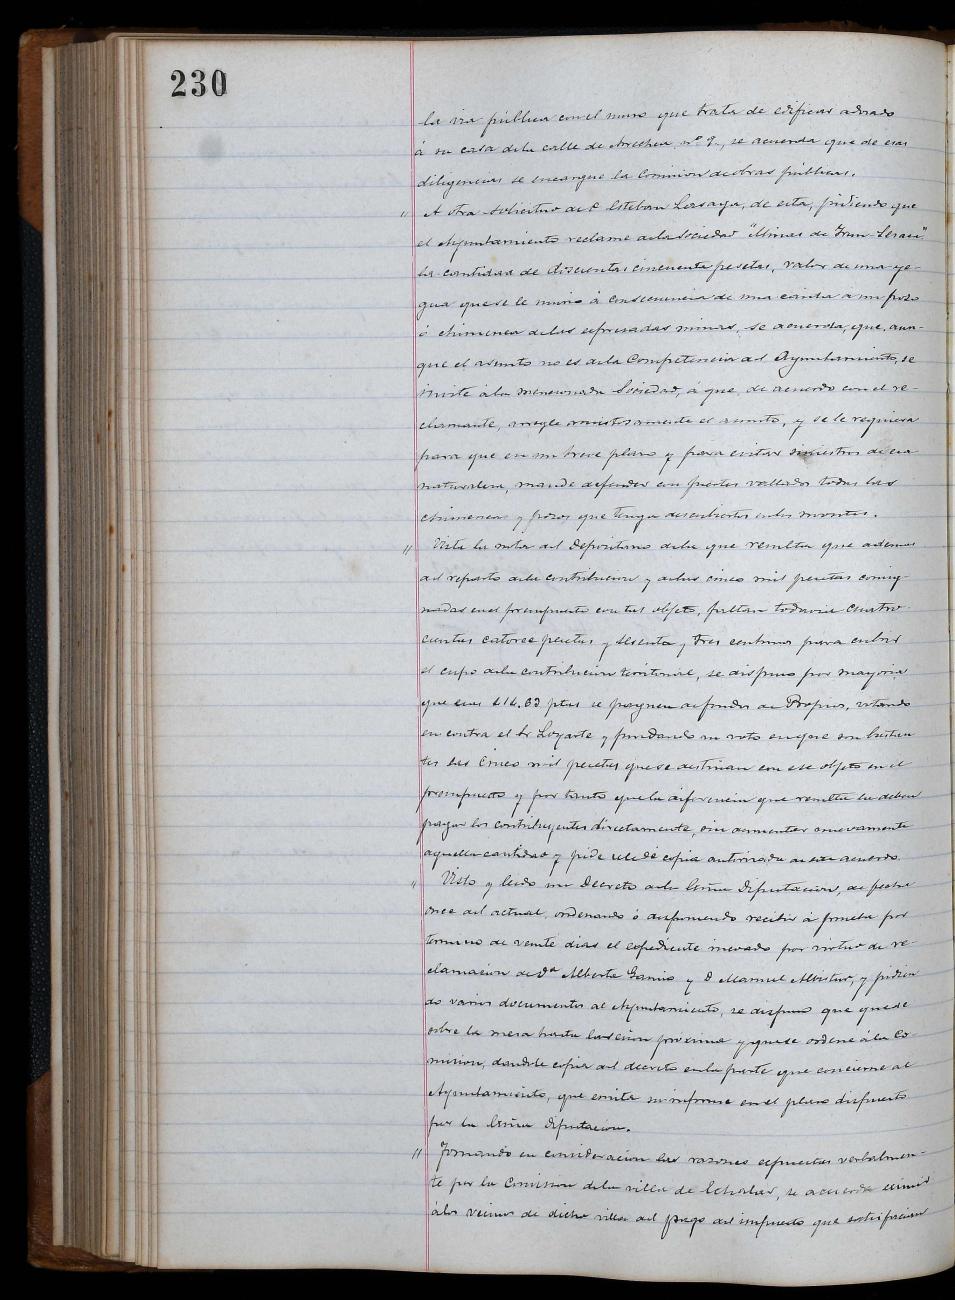 230
la via pública con el muro que trata de edificar adosado
á su casa de la calle de nº 9, se acuerda que de esas
diligencias se encargue la Comision de obras públicas.
" A otra solicitud de D. Esteban de esta, pidiendo que
el Ayuntamiento reclame de la Sociedad "Minas de Irun-Lesaca"
la cantidad de doscientas cincuenta pesetas, valor de una ye-
gua que se le murió á consecuencia de una caida a un pozo
ó chimenea de las expresadas minas, se acuerda, que, aun-
que el asunto no es de la Competencia del Ayuntamiento, se
invite á la mencionada Sociedad, á que, de acuerdo con el re-
clamante, arregle amistosamente el asunto, y se le requiera
para que en un breve plazo y para evitar siniestros de esa
naturaleza, mande defender con fuertes vallados todas las
chimeneas y pozos que tenga descubiertos en los montes.
" Vista la nota del Depositario de la que resulta que ademas
del reparto de la contribucion y de las cinco mil pesetas consig-
nadas en el presupuesto con tal objeto, faltan todavia cuatro-
cientas catorce pesetas y sesenta y tres centimos para cubrir
el cupo de la contribucion territorial, se dispuso por mayoria
que esas 414.63 ptas se paguen de fondos de Propios, votando
en contra el Sr Loyarte y fundando su voto en que son bastan
tes las cinco mil pesetas que se destinan con ese objeto en el
presupuesto y por tanto que la diferencia que resulta la deben
pagar los contribuyentes directamente, sin aumentar nuevamente
aquella cantidad y pide se le dé copia autorizada de este acuerdo.
" Visto y leido un Decreto de la Excma Diputacion, de fecha
once del actual, ordenando ó disponiendo recibir á prueba por
termino de veinte dias el expediente incoado por virtud de re-
clamacion de Dª Alberta Gamio y D Manuel Albistur, y pidien
do varios documentos al Ayuntamiento, se dispuso que quede
sobre la mesa hasta la sesion proxima y que se ordene á la Co-
mision, dandole copia del decreto en la parte que concierne al
Ayuntamiento, que emita su informe en el plazo dispuesto
por la Excma Diputacion.
" Tomando en consideracion las razones expuestas verbalmen-
te por la Comision de la villa de Echalar, se acuerda eximir
á los vecinos de dicha villa del pago del impuesto que satisfacian